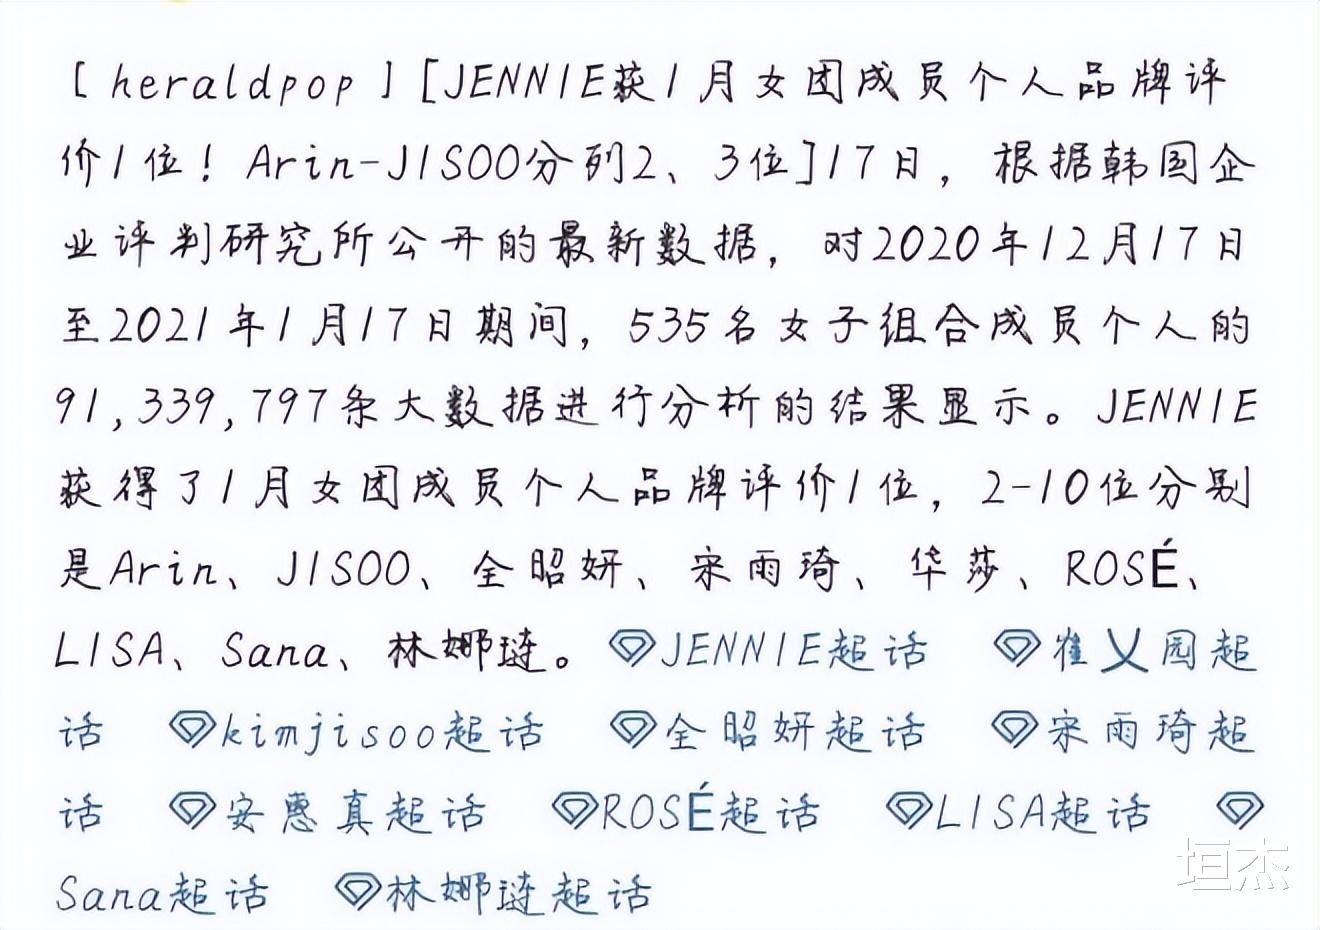 [heraldpop][JENNIE获1月女团成员个人品牌评
价1位！Arin-JISOO分列2、3位]17日，根据韩国企
业评判研究所公开的最新数据，对2020年12月17日
至2021年1月17日期间，535名女子组合成员个人的
91,339,797条大数据进行分析的结果显示。JENNIE
获得了1月女团成员个人品牌评价1位，2-10位分别
是Arin、JISOO、全昭妍、宋雨琦、华莎、ROSÉ、
LISA、Sana、林娜琏。JENNIE超话 崔乂园超
话 kimjisoo超话 全昭妍超话 宋雨琦超
话 安惠真超话 ROSÉ超话 LISA超话
Sana超话 林娜琏超话
垣杰